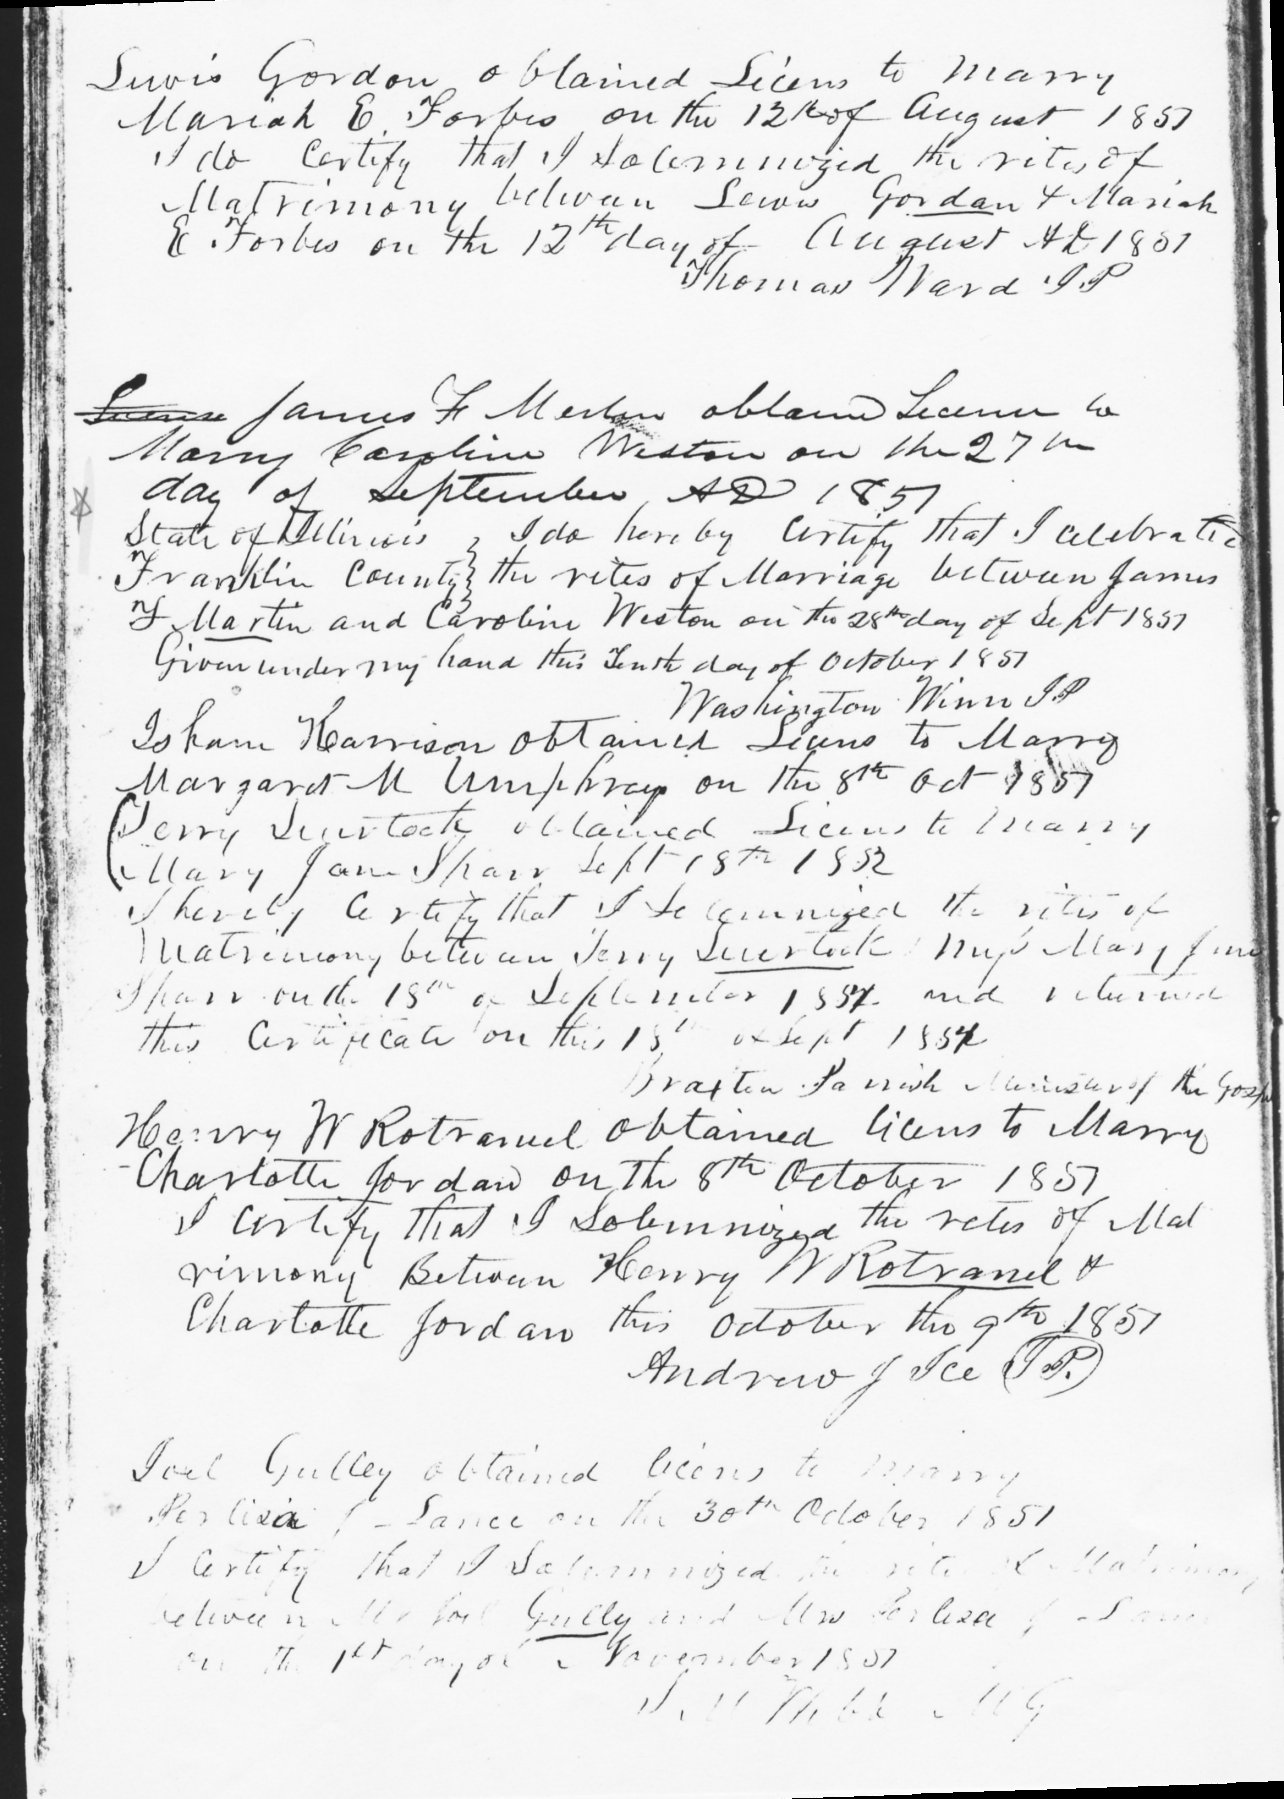 Lewis Gordon obtained Licens to Marry
Mariah E. Forbes on the 12th of August 1851
I do Certify that I Solemnized the rites of
Matrimony between Lewis Gordan & Mariah
E Forbes on the 12th day of August AD 1851
Thomas Ward J P
James F obtaind Licence to
Marry Caroline Weston on the 27th
day of September AD 1851
State of Illinois } I do hereby Certify that I celebrated
Franklin County } the rites of Marriage between James
F Martin and Caroline Weston on the 28th day of Sept 1851
Given under my hand this Tenth day of October 1851
Washington Winn J.P
Isham Harrison obtained Licens to Marry
Margaret M Umphrey on the 8th Oct 1851
obtained Licens to Marry
Mary Jane Sept 18th 1852
I hereby Certify that I Solemnized the rites of
Matrimony between Mary Jane
on the 18th of September and returned
this Certificate on this 18th of Sept
Braxton Parrish Minister of the Gospel
Henry W Rotramel obtained licens to Marry
Charlotte Jordan on the 8th October 1851
I certify that I Solemnized the rites of Mat
rimony Between Henry W Rotramel &
Charlotte Jordan this October the 9th 1851
Andrew J Ice (J P.)
Joel Gulley obtained licens to marry
Perliza J Lance on the 30th October 1851
I Certify that I Solemnized the rites of Matrimony
between Mr Joel Gully and Mrs Perliza J Lance
on the 1st day of November 1851
M G